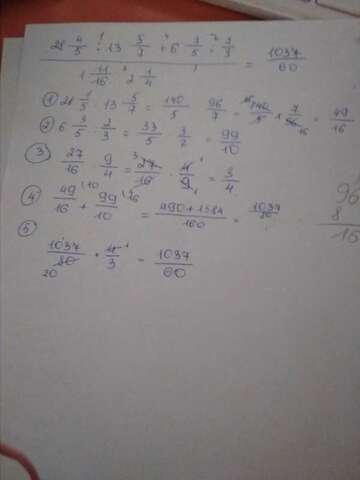 28 4/5 : 13 5/7 + 6 3/5 : 2/3 = 1037/60
1 11/16 : 2 1/4
① 28 1/5 : 13 5/7 = 140/5 : 96/7 = 140/5 × 7/96 = 49/16
② 6 3/5 : 2/3 = 33/5 · 3/2 = 99/10
③ 27/16 : 9/4 = 27/16 · 4/9 = 3/4
④ 49/16 + 99/10 = 490+1584/160 = 1037/80
96
8
16
⑤ 1037/80 × 4/3 = 1037/60
20